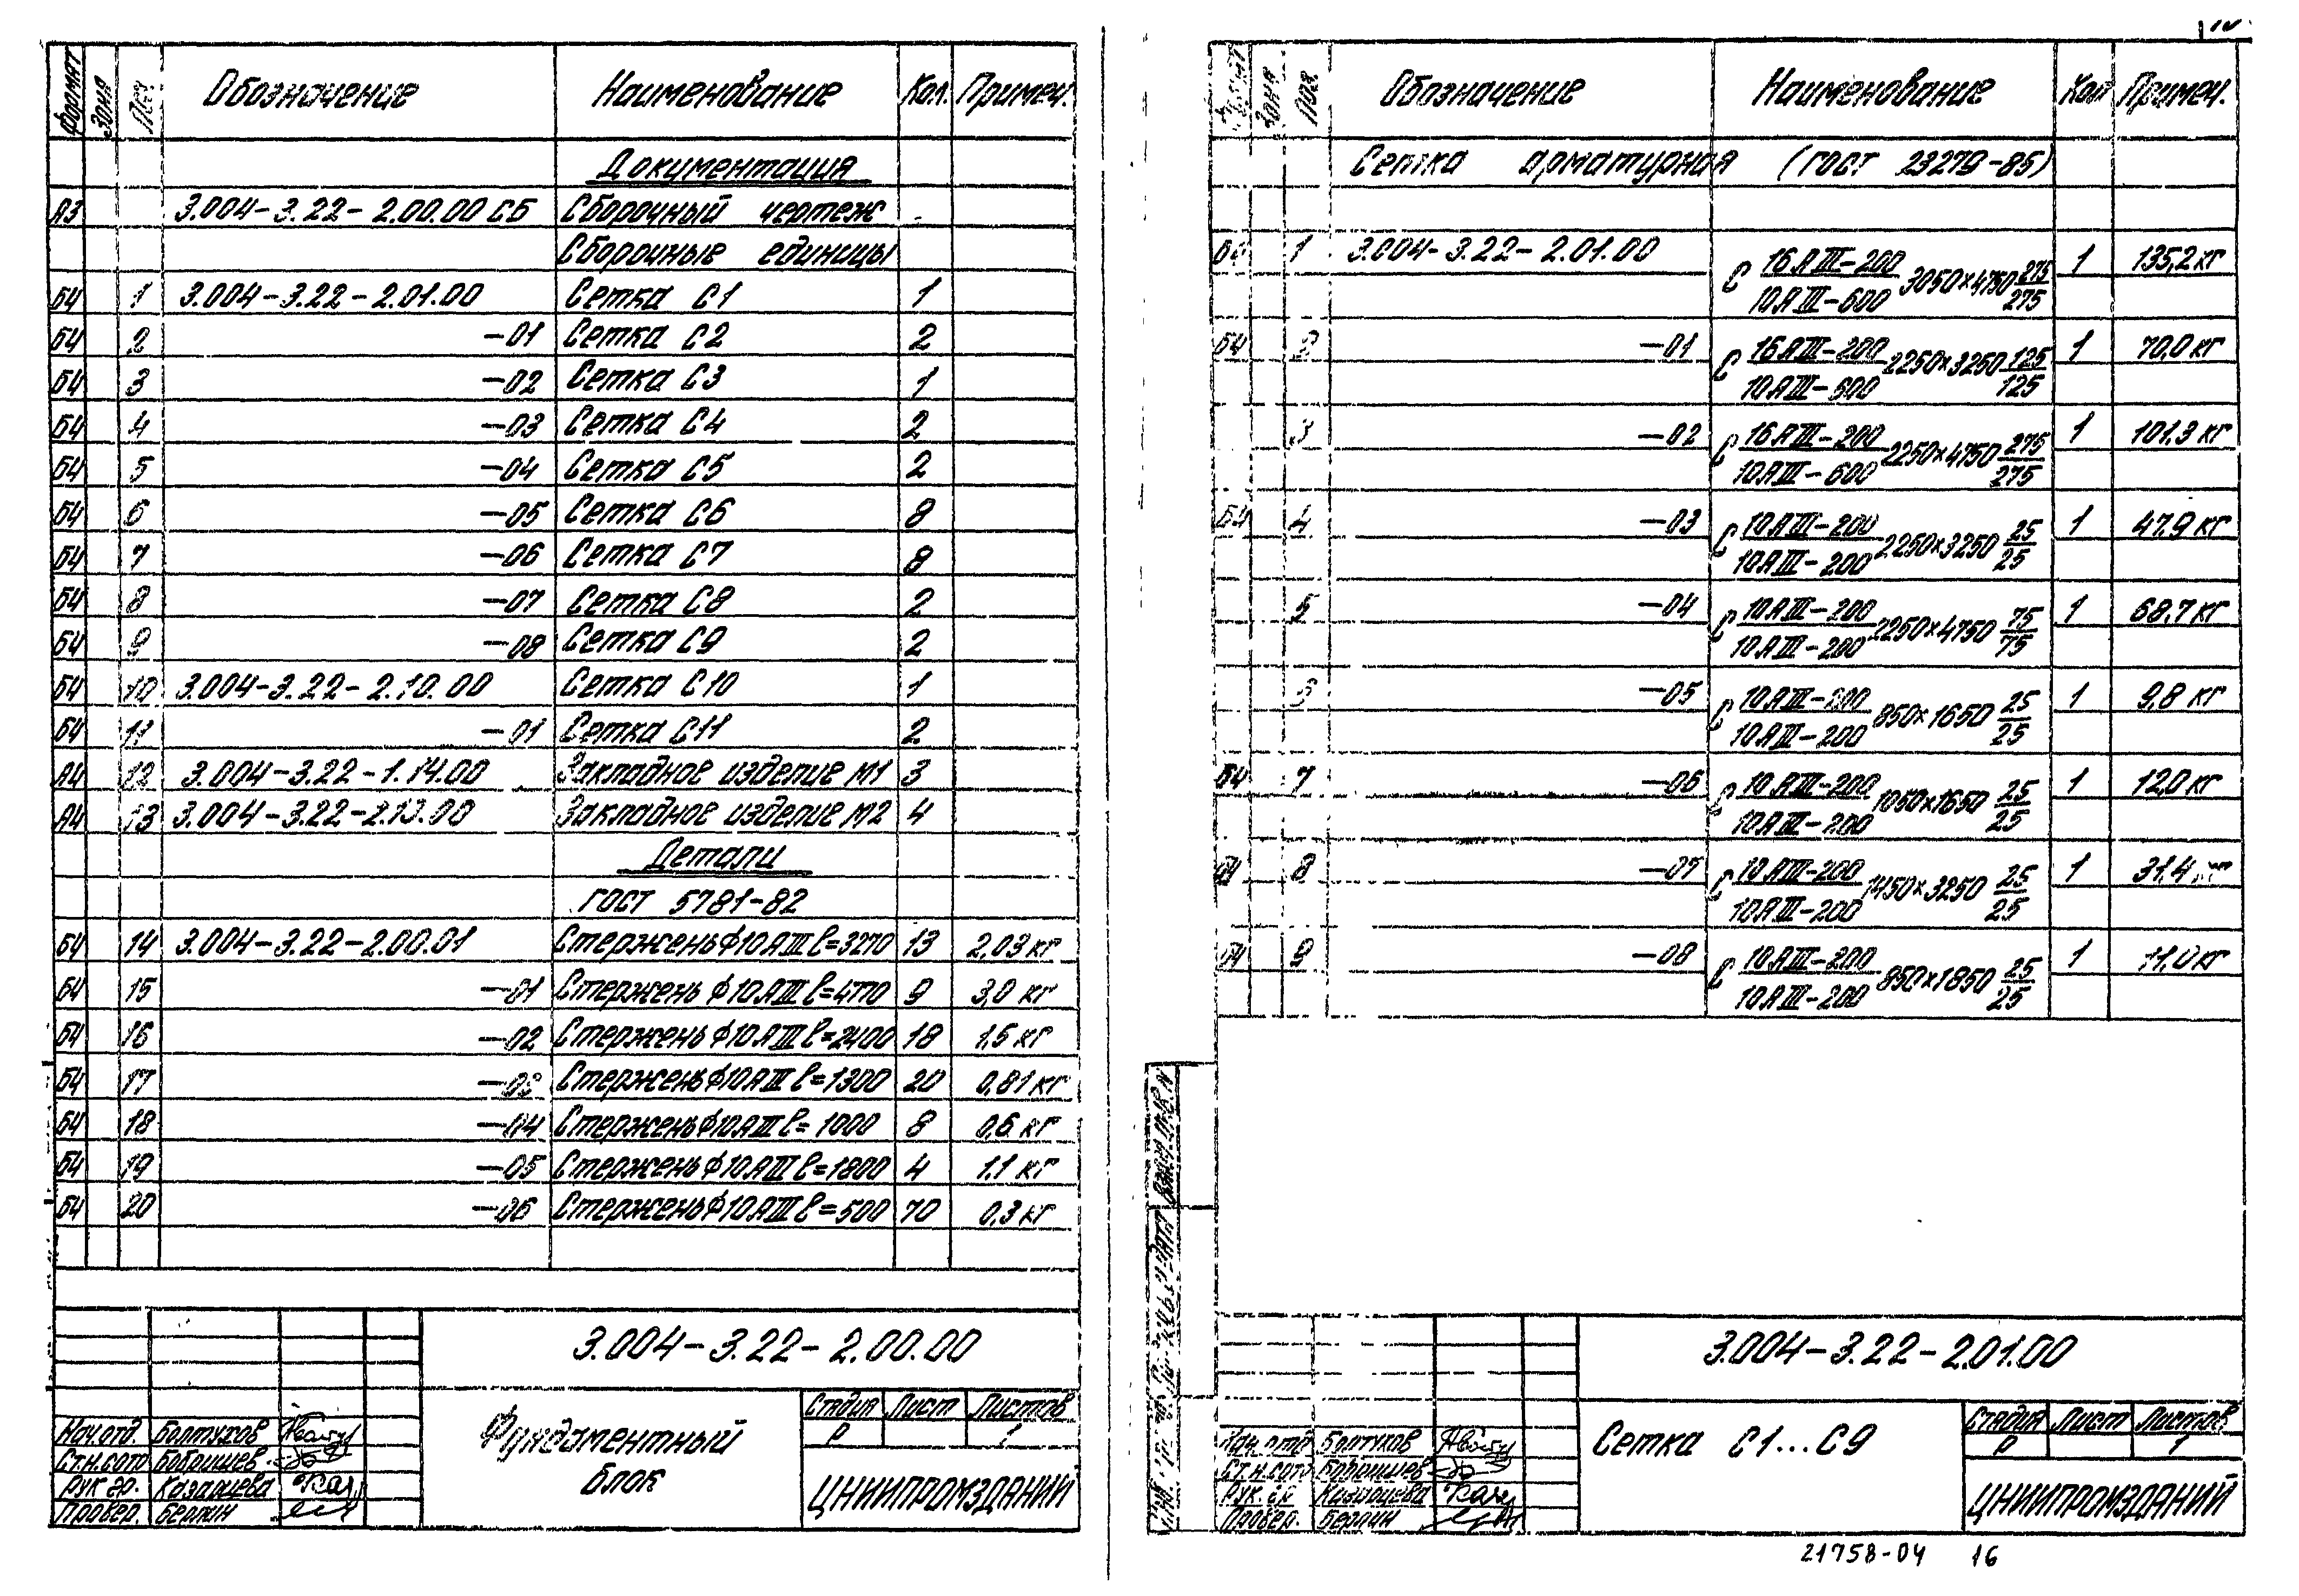 Формат Зона Поз. Обозначение Наименование Кол. Примеч.
Документация
А3 3.004-3.22-2.00.00 СБ Сборочный чертеж
Сборочные единицы
БЧ 1 3.004-3.22-2.01.00 Сетка С1 1
БЧ 2 -01 Сетка С2 2
БЧ 3 -02 Сетка С3 1
БЧ 4 -03 Сетка С4 2
БЧ 5 -04 Сетка С5 2
БЧ 6 -05 Сетка С6 8
БЧ 7 -06 Сетка С7 8
БЧ 8 -07 Сетка С8 2
БЧ 9 -08 Сетка С9 2
БЧ 10 3.004-3.22-2.10.00 Сетка С10 1
БЧ 11 -01 Сетка С11 2
А4 12 3.004-3.22-1.14.00 Закладное изделие М1 3
А4 13 3.004-3.22-2.13.00 Закладное изделие М2 4
Детали
ГОСТ 5781-82
БЧ 14 3.004-3.22-2.00.01 Стержень ф10АIII ℓ=3270 13 2,03 кг
БЧ 15 -01 Стержень ф10АIII ℓ=4770 9 3,0 кг
БЧ 16 -02 Стержень ф10АIII ℓ=2400 18 1,5 кг
БЧ 17 -03 Стержень ф10АIII ℓ=1300 20 0,81 кг
БЧ 18 -04 Стержень ф10АIII ℓ=1000 8 0,6 кг
БЧ 19 -05 Стержень ф10АIII ℓ=1800 4 1.1 кг
БЧ 20 -06 Стержень ф10АIII ℓ=500 70 0.3 кг
3.004-3.22-2.00.00
Фундаментный
блок
Стадия Лист Листов
Р 1
ЦНИИПРОМЗДАНИЙ
Нач.отд. Болтухов
Ст.н.сотр Бобрышев
Рук.гр. Казарцева
Провер. Берлин
Формат Зона Поз. Обозначение Наименование Кол Примеч.
Сетка арматурная (ГОСТ 23279-85)
БЧ 1 3.004-3.22-2.01.00 С 16АIII-200/10АIII-600 3050×4750 275/275 1 135,2 кг
БЧ 2 -01 С 16АIII-200/10АIII-600 2250×3250 125/125 1 70,0 кг
3 -02 С 16АIII-200/10АIII-600 2250×4750 275/275 1 101,3 кг
БЧ 4 -03 С 10АIII-200/10АIII-200 2250×3250 25/25 1 47,9 кг
5 -04 С 10АIII-200/10АIII-200 2250×4750 75/75 1 68,7 кг
6 -05 С 10АIII-200/10АIII-200 850×1650 25/25 1 9,8 кг
БЧ 7 -06 С 10АIII-200/10АIII-200 1050×1650 25/25 1 12,0 кг
БЧ 8 -07 С 10АIII-200/10АIII-200 1450×3250 25/25 1 31,4 кг
БЧ 9 -08 С 10АIII-200/10АIII-200 850×1850 25/25 1 11,0 кг
3.004-3.22-2.01.00
Сетка С1...С9
Стадия Лист Листов
Р 1
ЦНИИПРОМЗДАНИЙ
Нач.отд Болтухов
Ст.н.сотр Бобрышев
Рук.гр Казарцева
Провер. Берлин
21758-04 16